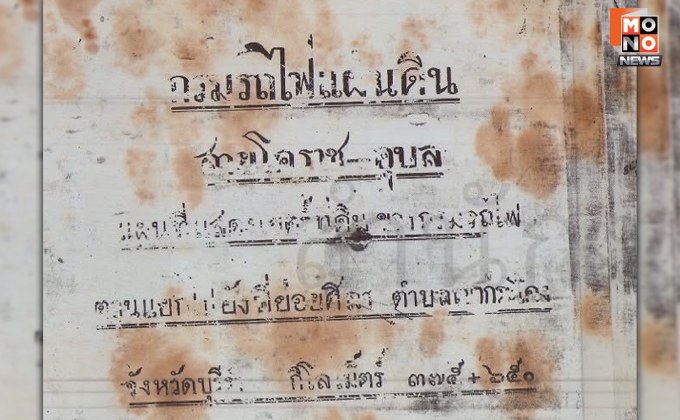 MONO
NEWS
กรมรถไฟแผ่นดิน
สายโคราช - อุบล
แผนที่แสดงเขตที่ดินของกรมรถไฟ
ตอนแยกไปยังที่ย่อยศิลา ตำบลเขากระโดง
จังหวัดบุรีรัมย์ กิโลเม็ตร์ ๓๗๕ + ๖๕๐